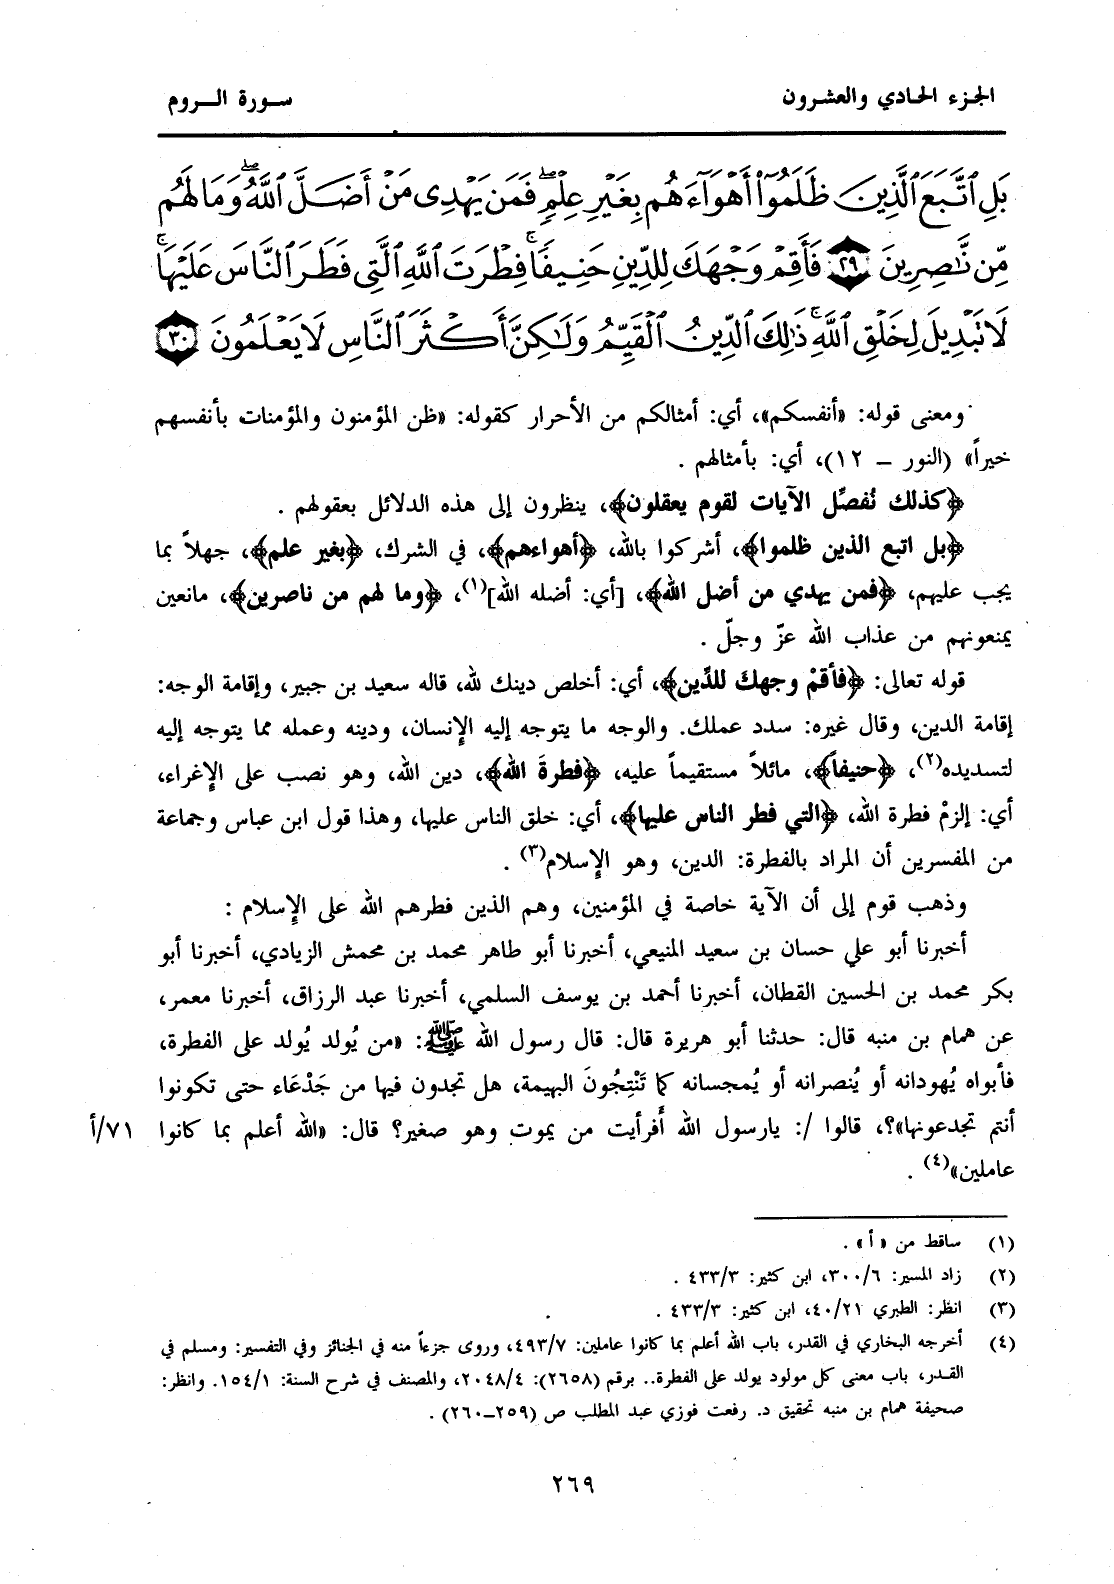 الجزء الحادي والعشرون
سورة الروم
بَلِ ٱتَّبَعَ ٱلَّذِينَ ظَلَمُوٓا۟ أَهْوَآءَهُم بِغَيْرِ عِلْمٍ ۖ فَمَن يَهْدِى مَنْ أَضَلَّ ٱللَّهُ ۖ وَمَا لَهُم
مِّن نَّٰصِرِينَ ٢٩ فَأَقِمْ وَجْهَكَ لِلدِّينِ حَنِيفًا ۚ فِطْرَتَ ٱللَّهِ ٱلَّتِى فَطَرَ ٱلنَّاسَ عَلَيْهَا ۚ
لَا تَبْدِيلَ لِخَلْقِ ٱللَّهِ ۚ ذَٰلِكَ ٱلدِّينُ ٱلْقَيِّمُ وَلَٰكِنَّ أَكْثَرَ ٱلنَّاسِ لَا يَعْلَمُونَ ٣٠
ومعنى قوله: «أنفسكم»، أي: أمثالكم من الأحرار كقوله: «ظن المؤمنون والمؤمنات بأنفسهم
خيراً» (النور – ١٢)، أي: بأمثالهم .
﴿كذلك نُفصِّل الآيات لقوم يعقلون﴾، ينظرون إلى هذه الدلائل بعقولهم .
﴿بل اتبع الذين ظلموا﴾، أشركوا بالله، ﴿أهواءهم﴾، في الشرك، ﴿بغير علم﴾، جهلاً بما
يجب عليهم، ﴿فمن يهدي من أضل الله﴾، [أي: أضله الله](١)، ﴿وما لهم من ناصرين﴾، مانعين
يمنعونهم من عذاب الله عزّ وجلّ .
قوله تعالى: ﴿فأقمْ وجهكَ للدِّين﴾، أي: أخلص دينك لله، قاله سعيد بن جبير، وإقامة الوجه:
إقامة الدين، وقال غيره: سدد عملك. والوجه ما يتوجه إليه الإنسان، ودينه وعمله مما يتوجه إليه
لتسديده(٢)، ﴿حنيفاً﴾، مائلاً مستقيماً عليه، ﴿فطرةَ الله﴾، دين الله، وهو نصب على الإغراء،
أي: إلزمْ فطرة الله، ﴿التي فطر الناس عليها﴾، أي: خلق الناس عليها، وهذا قول ابن عباس وجماعة
من المفسرين أن المراد بالفطرة: الدين، وهو الإسلام(٣) .
وذهب قوم إلى أن الآية خاصة في المؤمنين، وهم الذين فطرهم الله على الإسلام :
أخبرنا أبو علي حسان بن سعيد المنيعي، أخبرنا أبو طاهر محمد بن محمش الزيادي، أخبرنا أبو
بكر محمد بن الحسين القطان، أخبرنا أحمد بن يوسف السلمي، أخبرنا عبد الرزاق، أخبرنا معمر،
عن همام بن منبه قال: حدثنا أبو هريرة قال: قال رسول الله ﷺ: «من يُولد يُولد على الفطرة،
فأبواه يُهودانه أو يُنصرانه أو يُمجسانه كما تَنْتِجُونَ البهيمة، هل تجدون فيها من جَدْعَاء حتى تكونوا
أنتم تجدعونها»؟، قالوا /: يارسول الله أفرأيت من يموت وهو صغير؟ قال: «الله أعلم بما كانوا ٧١/أ
عاملين»(٤) .
(١) ساقط من «أ» .
(٢) زاد المسير: ٣٠٠/٦، ابن كثير: ٤٣٣/٣ .
(٣) انظر: الطبري ٤٠/٢١، ابن كثير: ٤٣٣/٣ .
(٤) أخرجه البخاري في القدر، باب الله أعلم بما كانوا عاملين: ٤٩٣/٧، وروى جزءاً منه في الجنائز وفي التفسير: ومسلم في
القدر، باب معنى كل مولود يولد على الفطرة.. برقم (٢٦٥٨): ٢٠٤٨/٤، والمصنف في شرح السنة: ١٥٤/١. وانظر:
صحيفة همام بن منبه تحقيق د. رفعت فوزي عبد المطلب ص (٢٥٩–٢٦٠) .
٢٦٩